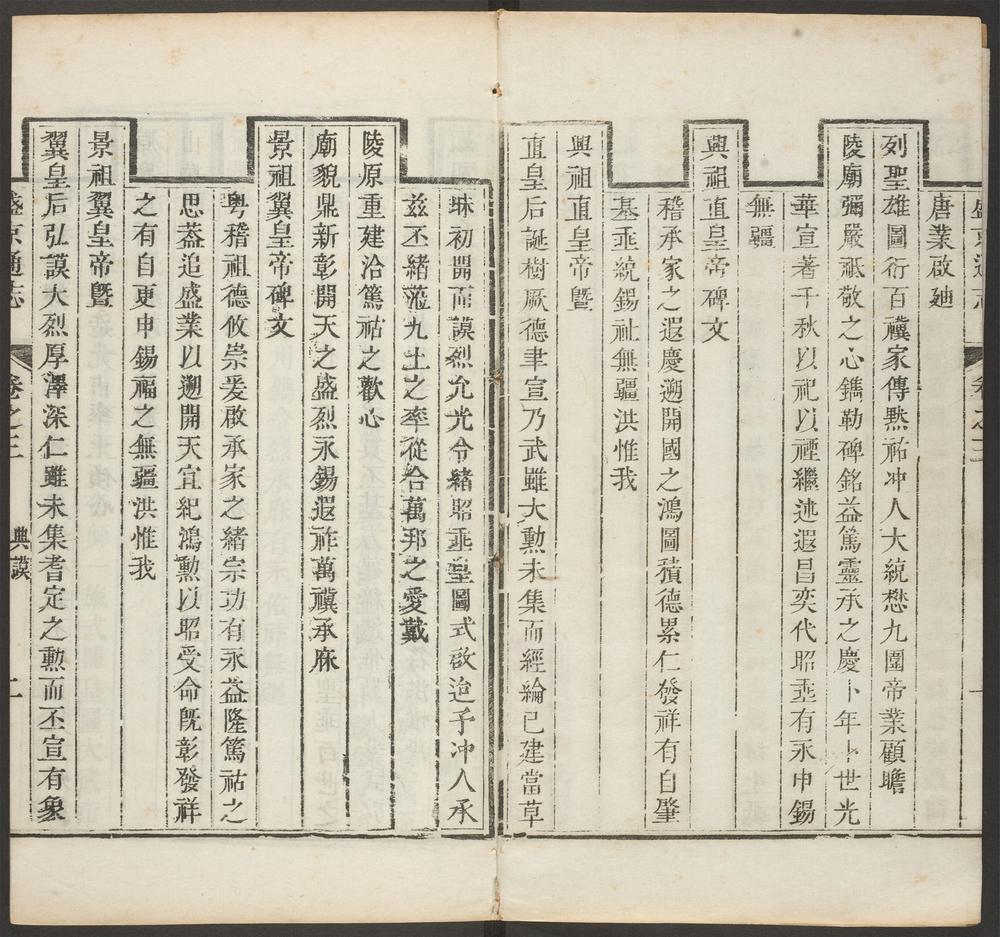 盛京通志 卷之三 一
唐業啟廸
列聖雄圖衍百禩家傳黙祐冲人大統懋九圍帝業顧瞻
陵廟彌嚴祗敬之心鐫勒碑銘益篤靈承之慶卜年卜世光
華宣著千秋以祀以禋繼述遐昌奕代昭垂有永申錫
無疆
興祖直皇帝碑文
稽承家之遐慶遡開國之鴻圖積德累仁發祥有自肇
基垂統錫祉無疆洪惟我
興祖直皇帝暨
直皇后誕樹厥德聿宣乃武雖大勲未集而經綸已建當草
昧初開而謨烈允光令緒昭垂皇圖式啟迨予冲人承
兹丕緒蒞九土之率從合萬邦之愛戴
陵原重建洽篤祜之歡心
廟貌鼎新彰開天之盛烈永錫遐祚萬禩承庥
景祖翼皇帝碑文
粤稽祖德攸崇爰啟承家之緒宗功有永益隆篤祜之
思葢追盛業以遡開天宜紀鴻勲以昭受命旣彰發祥
之有自更申錫福之無疆洪惟我
景祖翼皇帝曁
翼皇后弘謨大烈厚澤深仁雖未集耆定之勲而丕宣有象
盛京通志 卷之三 典謨 二